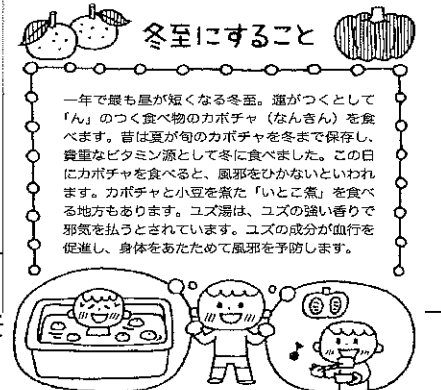 冬至にすること
一年で最も昼が短くなる冬至。運がつくとして
「ん」のつく食べ物のカボチャ（なんきん）を食
べます。昔は夏が旬のカボチャを冬まで保存し、
貴重なビタミン源として冬に食べました。この日
にカボチャを食べると、風邪をひかないといわれ
ます。カボチャと小豆を煮た「いとこ煮」を食べ
る地方もあります。ユズ湯は、ユズの強い香りで
邪気を払うとされています。ユズの成分が血行を
促進し、身体をあたためて風邪を予防します。